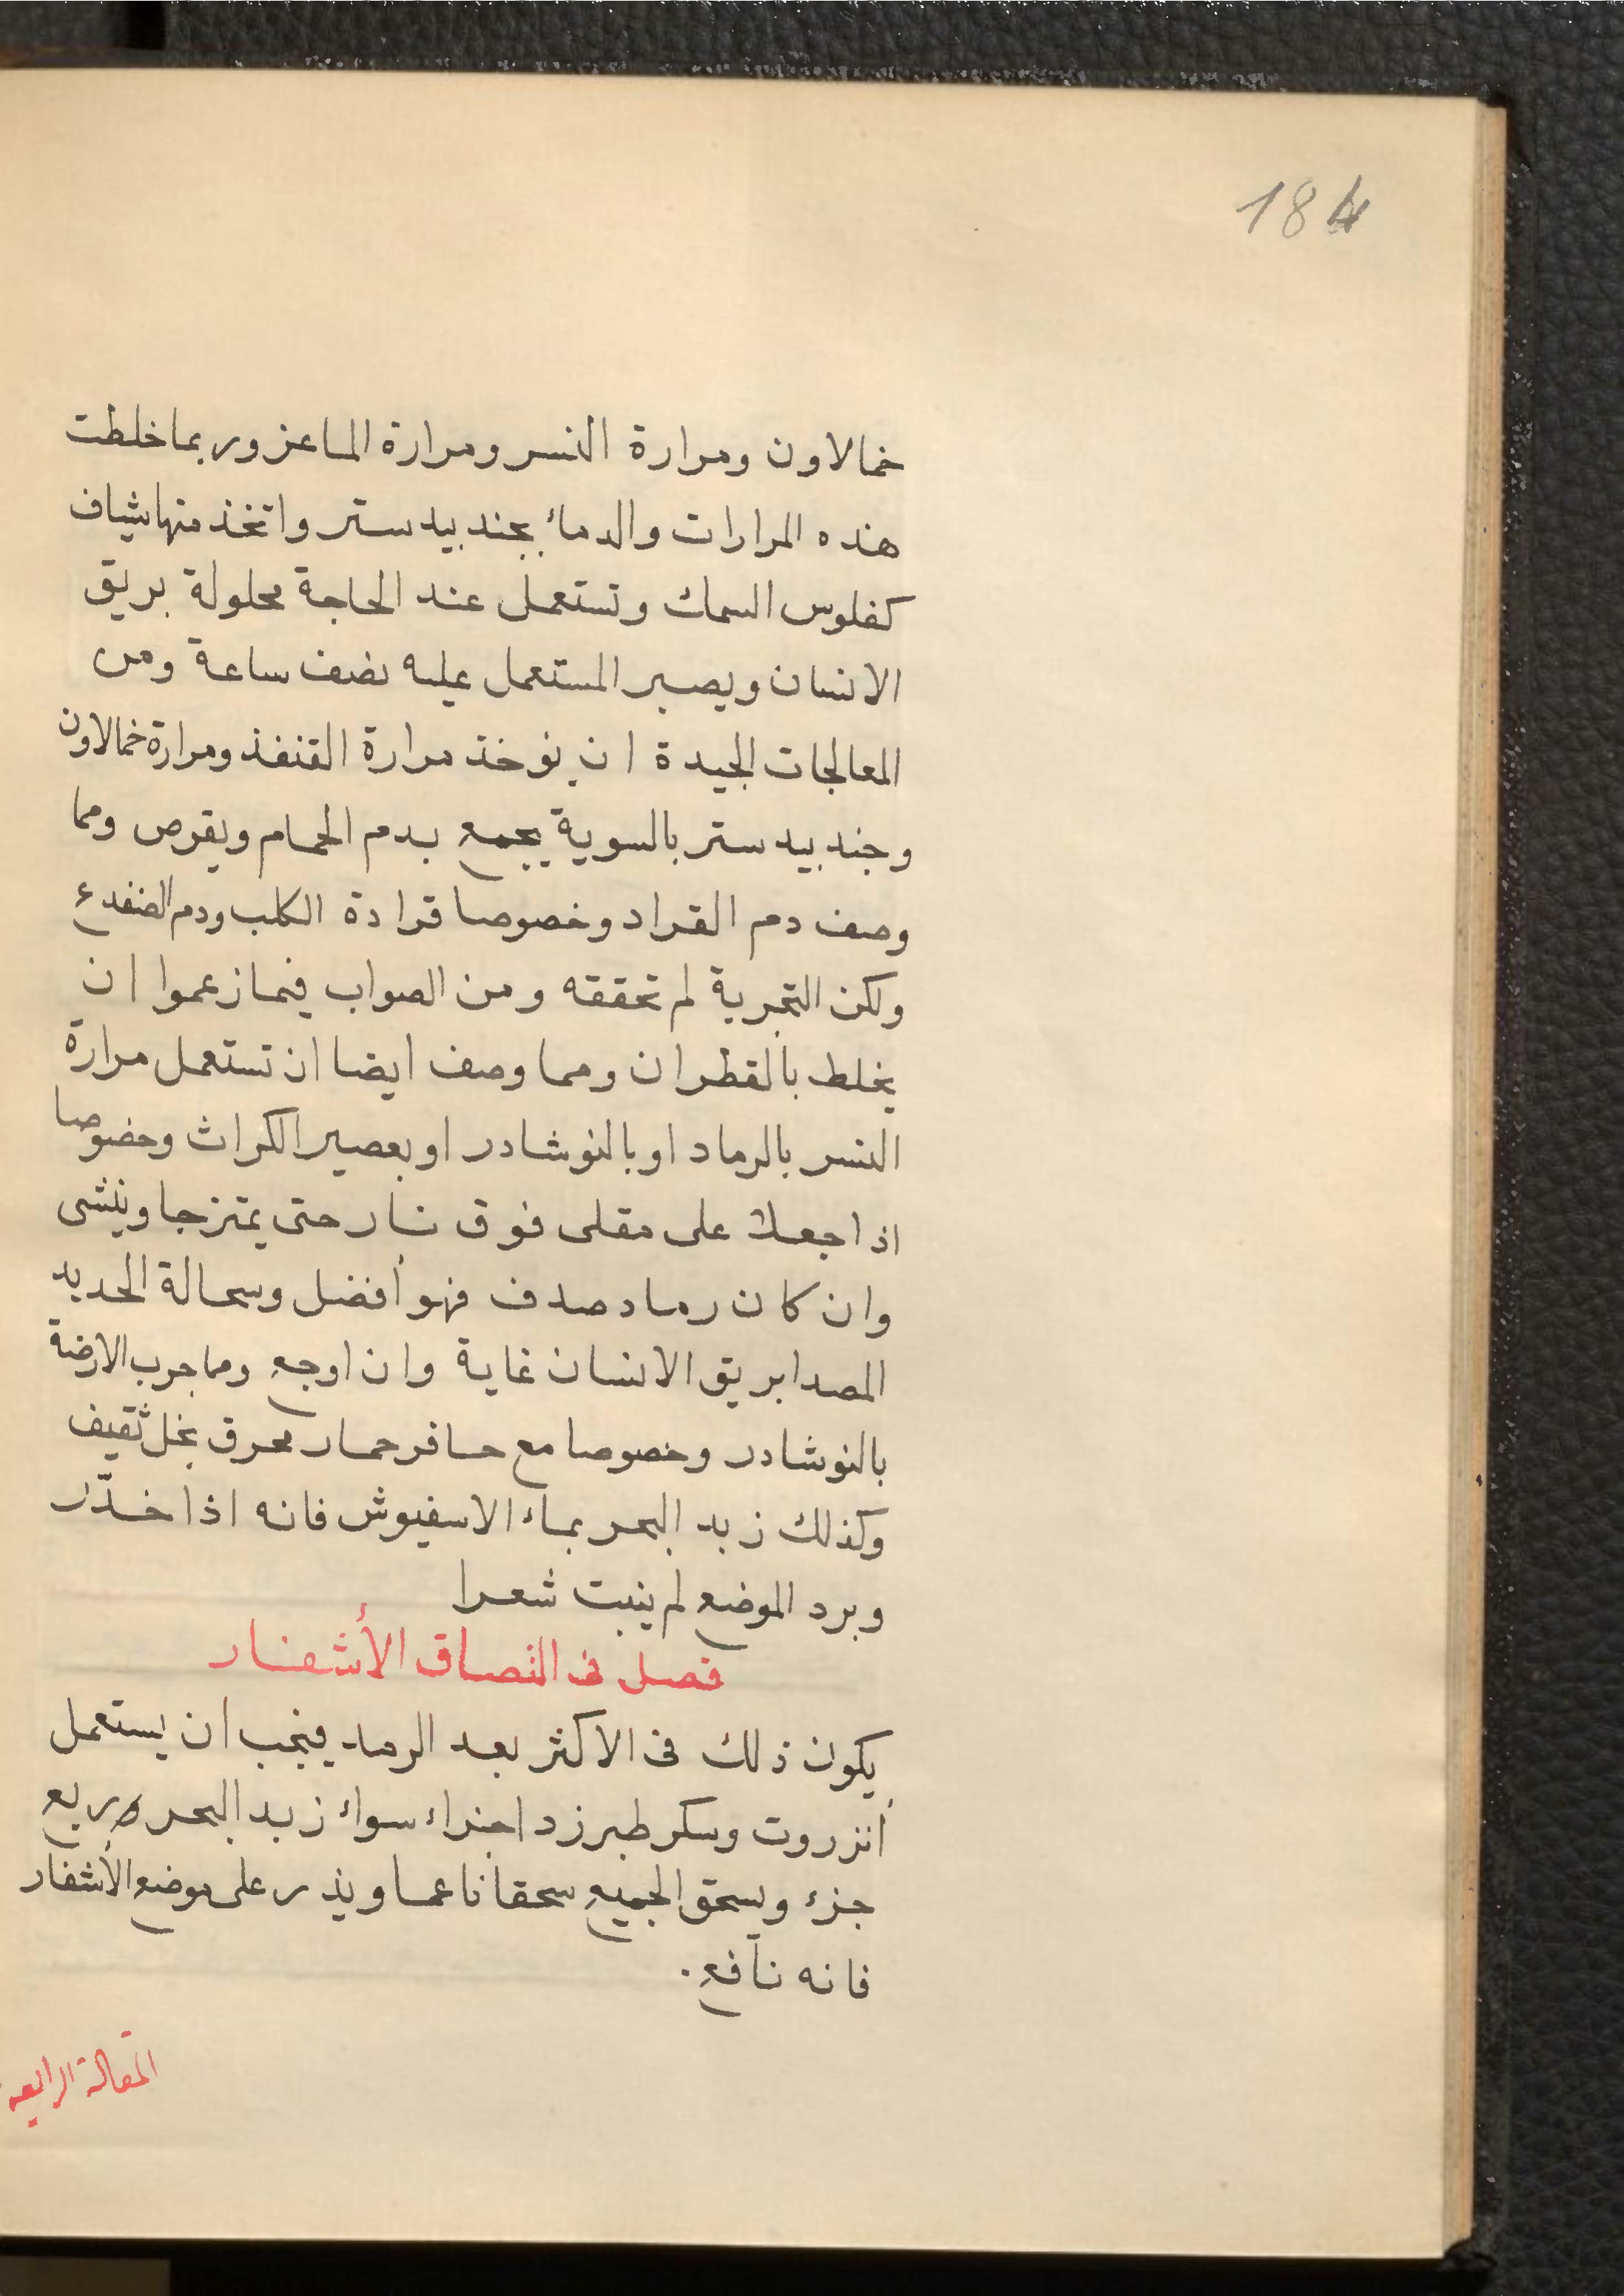 184
خمالاون ومرارة النسر ومرارة الماعز وربما خلطت
هذه المرارات والدماء بجندبيدستر واتخذ منها شياف
كفلوس السمك وتستعمل عند الحاجة محلولة بريق
الانسان ويصبر المستعمل عليه نصف ساعة ومن
المعالجات الجيدة ان يوخذ مرارة القنفذ ومرارة خمالاون
وجندبيدستر بالسوية يجمع بدم الحمام ويقرص ومما
وصف دم القراد وخصوصا قرادة الكلب ودم الضفدع
ولكن التجربة لم تحققه ومن الصواب فيما زعموا ان
يخلط بالقطران ومما وصف ايضا ان تستعمل مرارة
النسر بالرماد او بالنوشادر او بعصير الكراث وخصوصا
اذا جعلا على مقلى فوق نار حتى يمتزجا وينشى
وان كان رماد صدف فهو أفضل وسحالة الحديد
المصدا بريق الانسان غاية وان اوجع ومما جرب الارضة
بالنوشادر وخصوصا مع حافر حمار محرق بخل ثقيف
وكذلك زبد البحر بماء الاسفيوش فانه اذا خدّر
وبرد الموضع لم ينبت شعرا
فصل فى التصاق الأشفار
يكون ذلك فى الاكثر بعد الرمد فيجب ان يستعمل
أنزروت وسكر طبرزد اجزاء سواء زبد البحر ربع
جزء ويسحق الجميع سحقا ناعما ويذر على موضع الأشفار
فانه نافع.
المقالة الرابعه